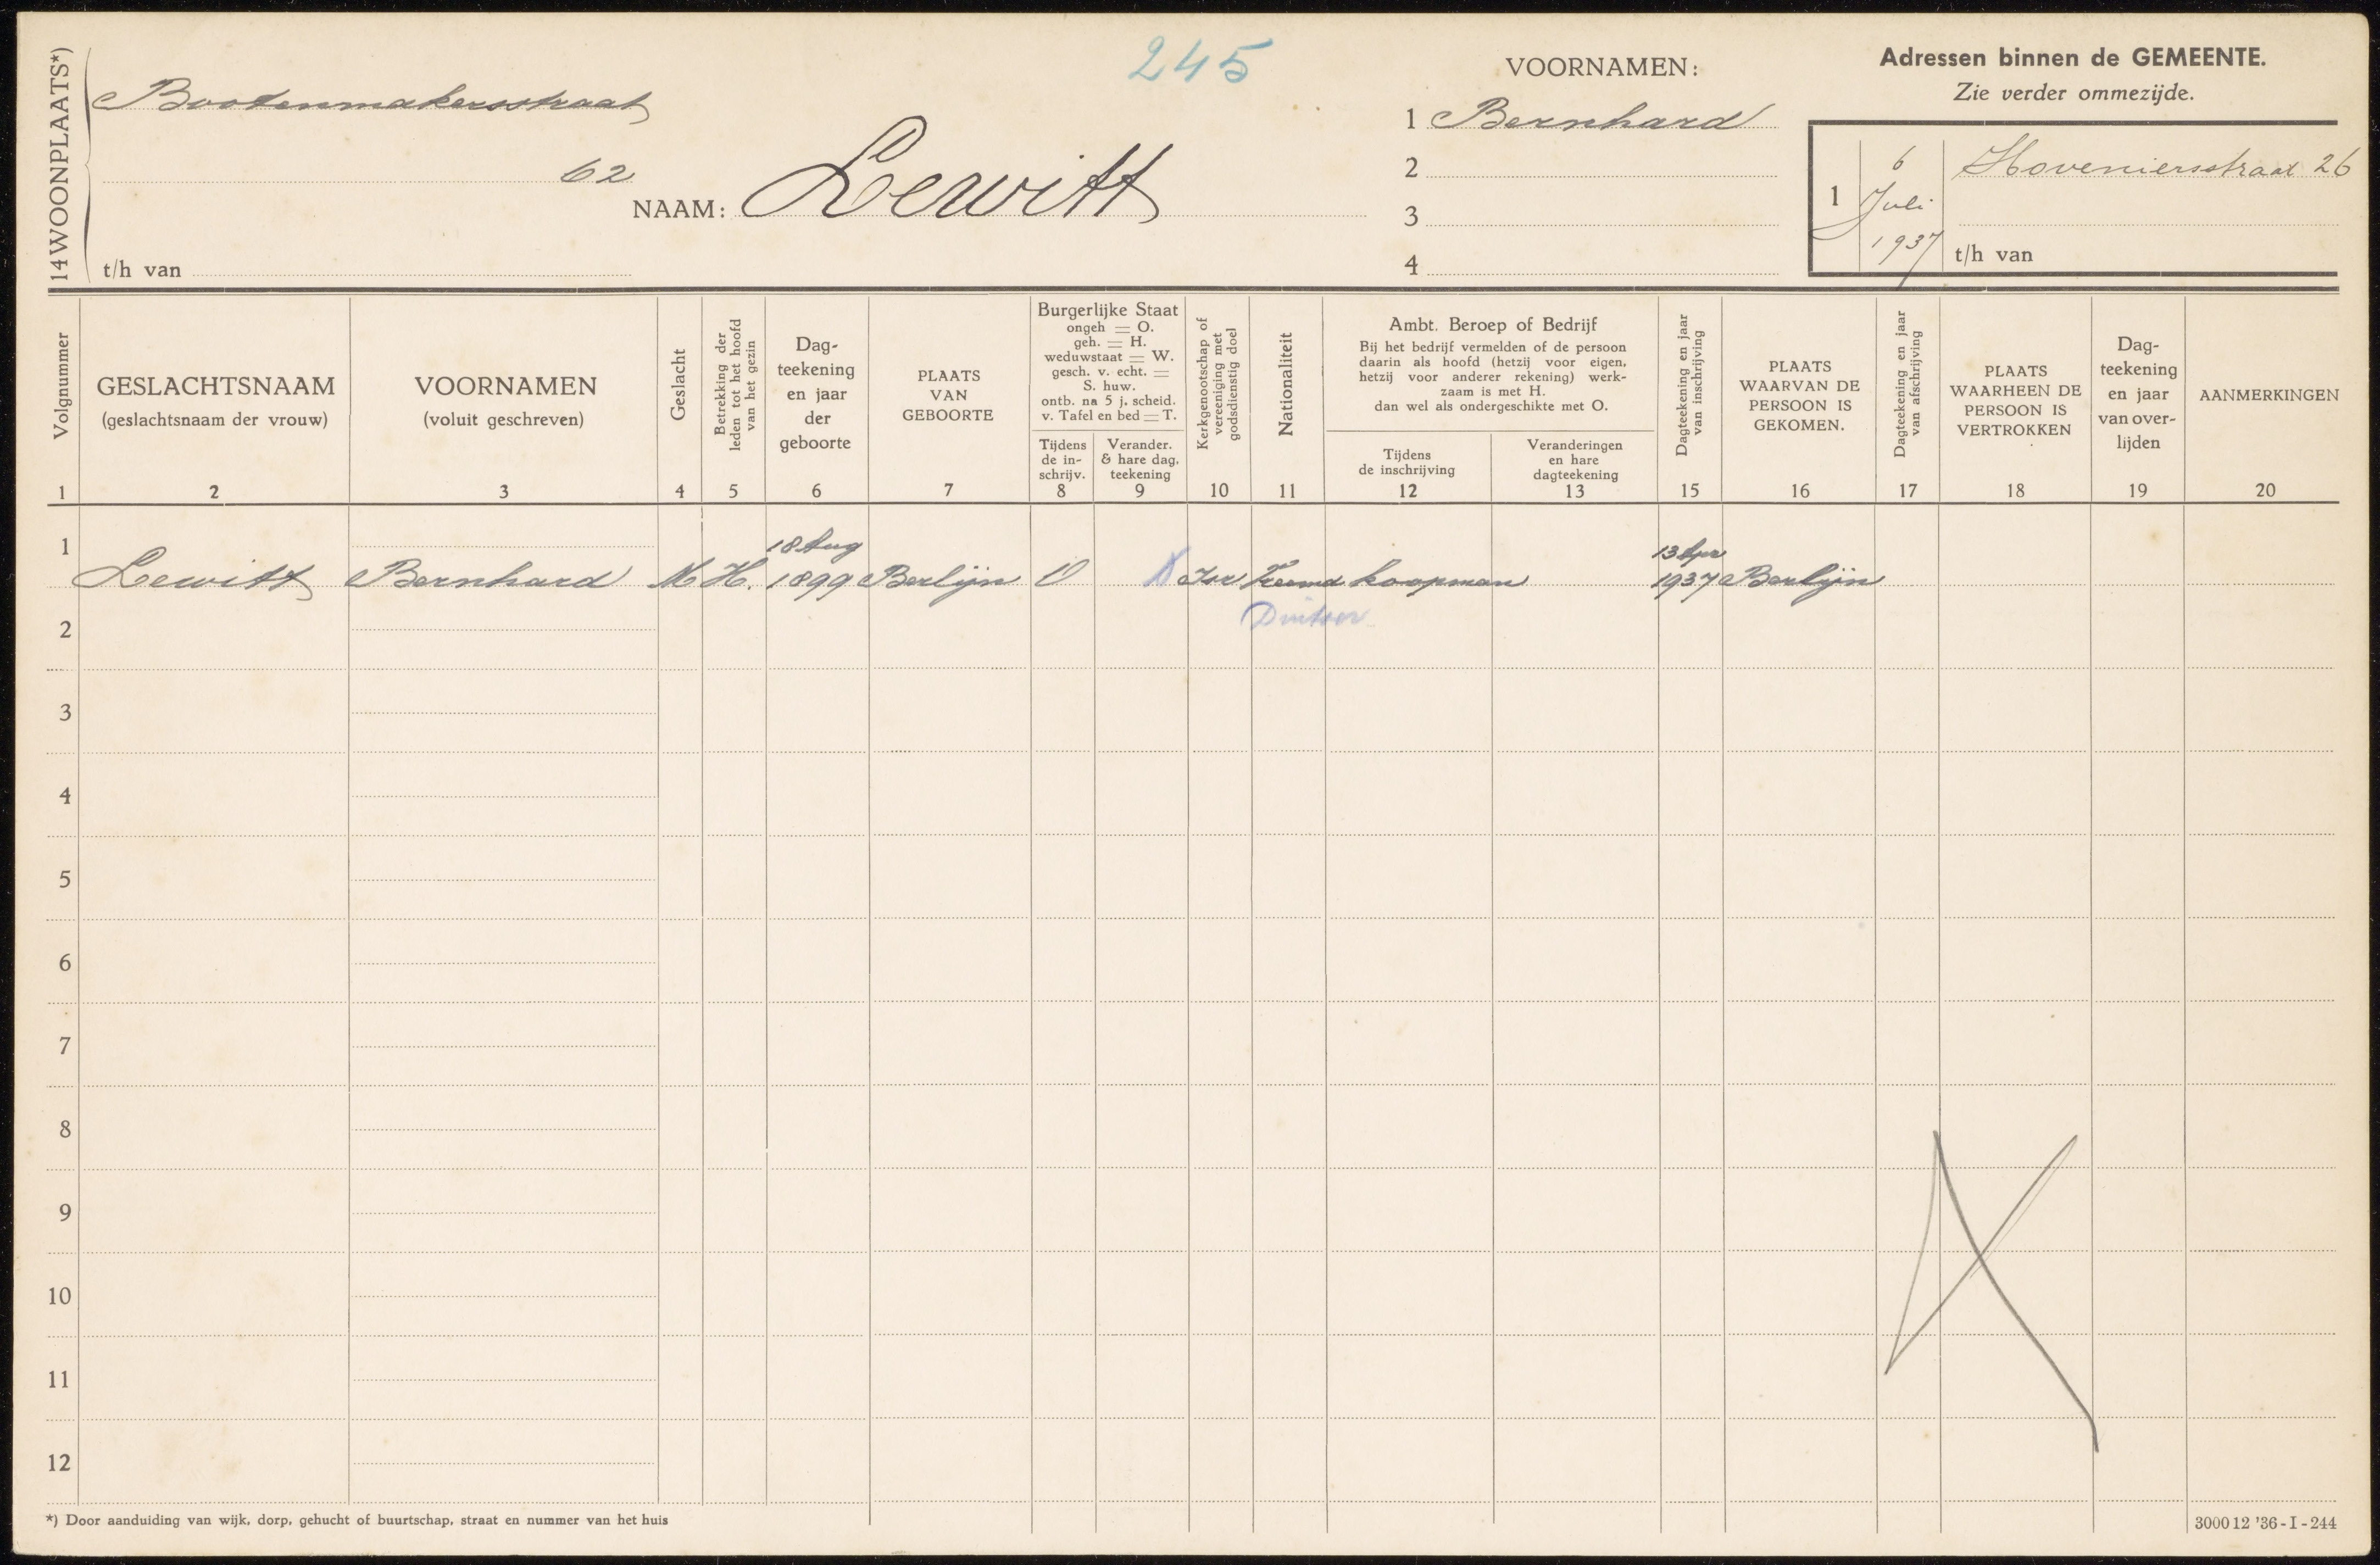 245
14 WOONPLAATS*)
Bootenmakersstraat
62
t/h van
NAAM: Lewitt
VOORNAMEN:
1 Bernhard
2
3
4
Adressen binnen de GEMEENTE.
Zie verder ommezijde.
1 6 Juli 1937 Hoveniersstraat 26
t/h van
Volgnummer
1
GESLACHTSNAAM
(geslachtsnaam der vrouw)
2
VOORNAMEN
(voluit geschreven)
3
Geslacht
4
Betrekking der
leden tot het hoofd
van het gezin
5
Dag-
teekening
en jaar
der
geboorte
6
PLAATS
VAN
GEBOORTE
7
Burgerlijke Staat
ongeh = O.
geh. = H.
weduwstaat = W.
gesch. v. echt. =
S. huw.
ontb. na 5 j. scheid.
v. Tafel en bed = T.
Tijdens
de in-
schrijv.
8
Verander.
& hare dag.
teekening
9
Kerkgenootschap of
vereeniging met
godsdienstig doel
10
Nationaliteit
11
Ambt. Beroep of Bedrijf
Bij het bedrijf vermelden of de persoon
daarin als hoofd (hetzij voor eigen,
hetzij voor anderer rekening) werk-
zaam is met H.
dan wel als ondergeschikte met O.
Tijdens
de inschrijving
12
Veranderingen
en hare
dagteekening
13
Dagteekening en jaar
van inschrijving
15
PLAATS
WAARVAN DE
PERSOON IS
GEKOMEN.
16
Dagteekening en jaar
van afschrijving
17
PLAATS
WAARHEEN DE
PERSOON IS
VERTROKKEN
18
Dag-
teekening
en jaar
van over-
lijden
19
AANMERKINGEN
20
1 Lewitt Bernhard M H. 18 Aug 1899 Berlijn O Isr Vreemd koopman 13 Apr 1937 Berlijn
2
3
4
5
6
7
8
9
10
11
12
*) Door aanduiding van wijk, dorp, gehucht of buurtschap, straat en nummer van het huis
3000 12 '36 - I - 244